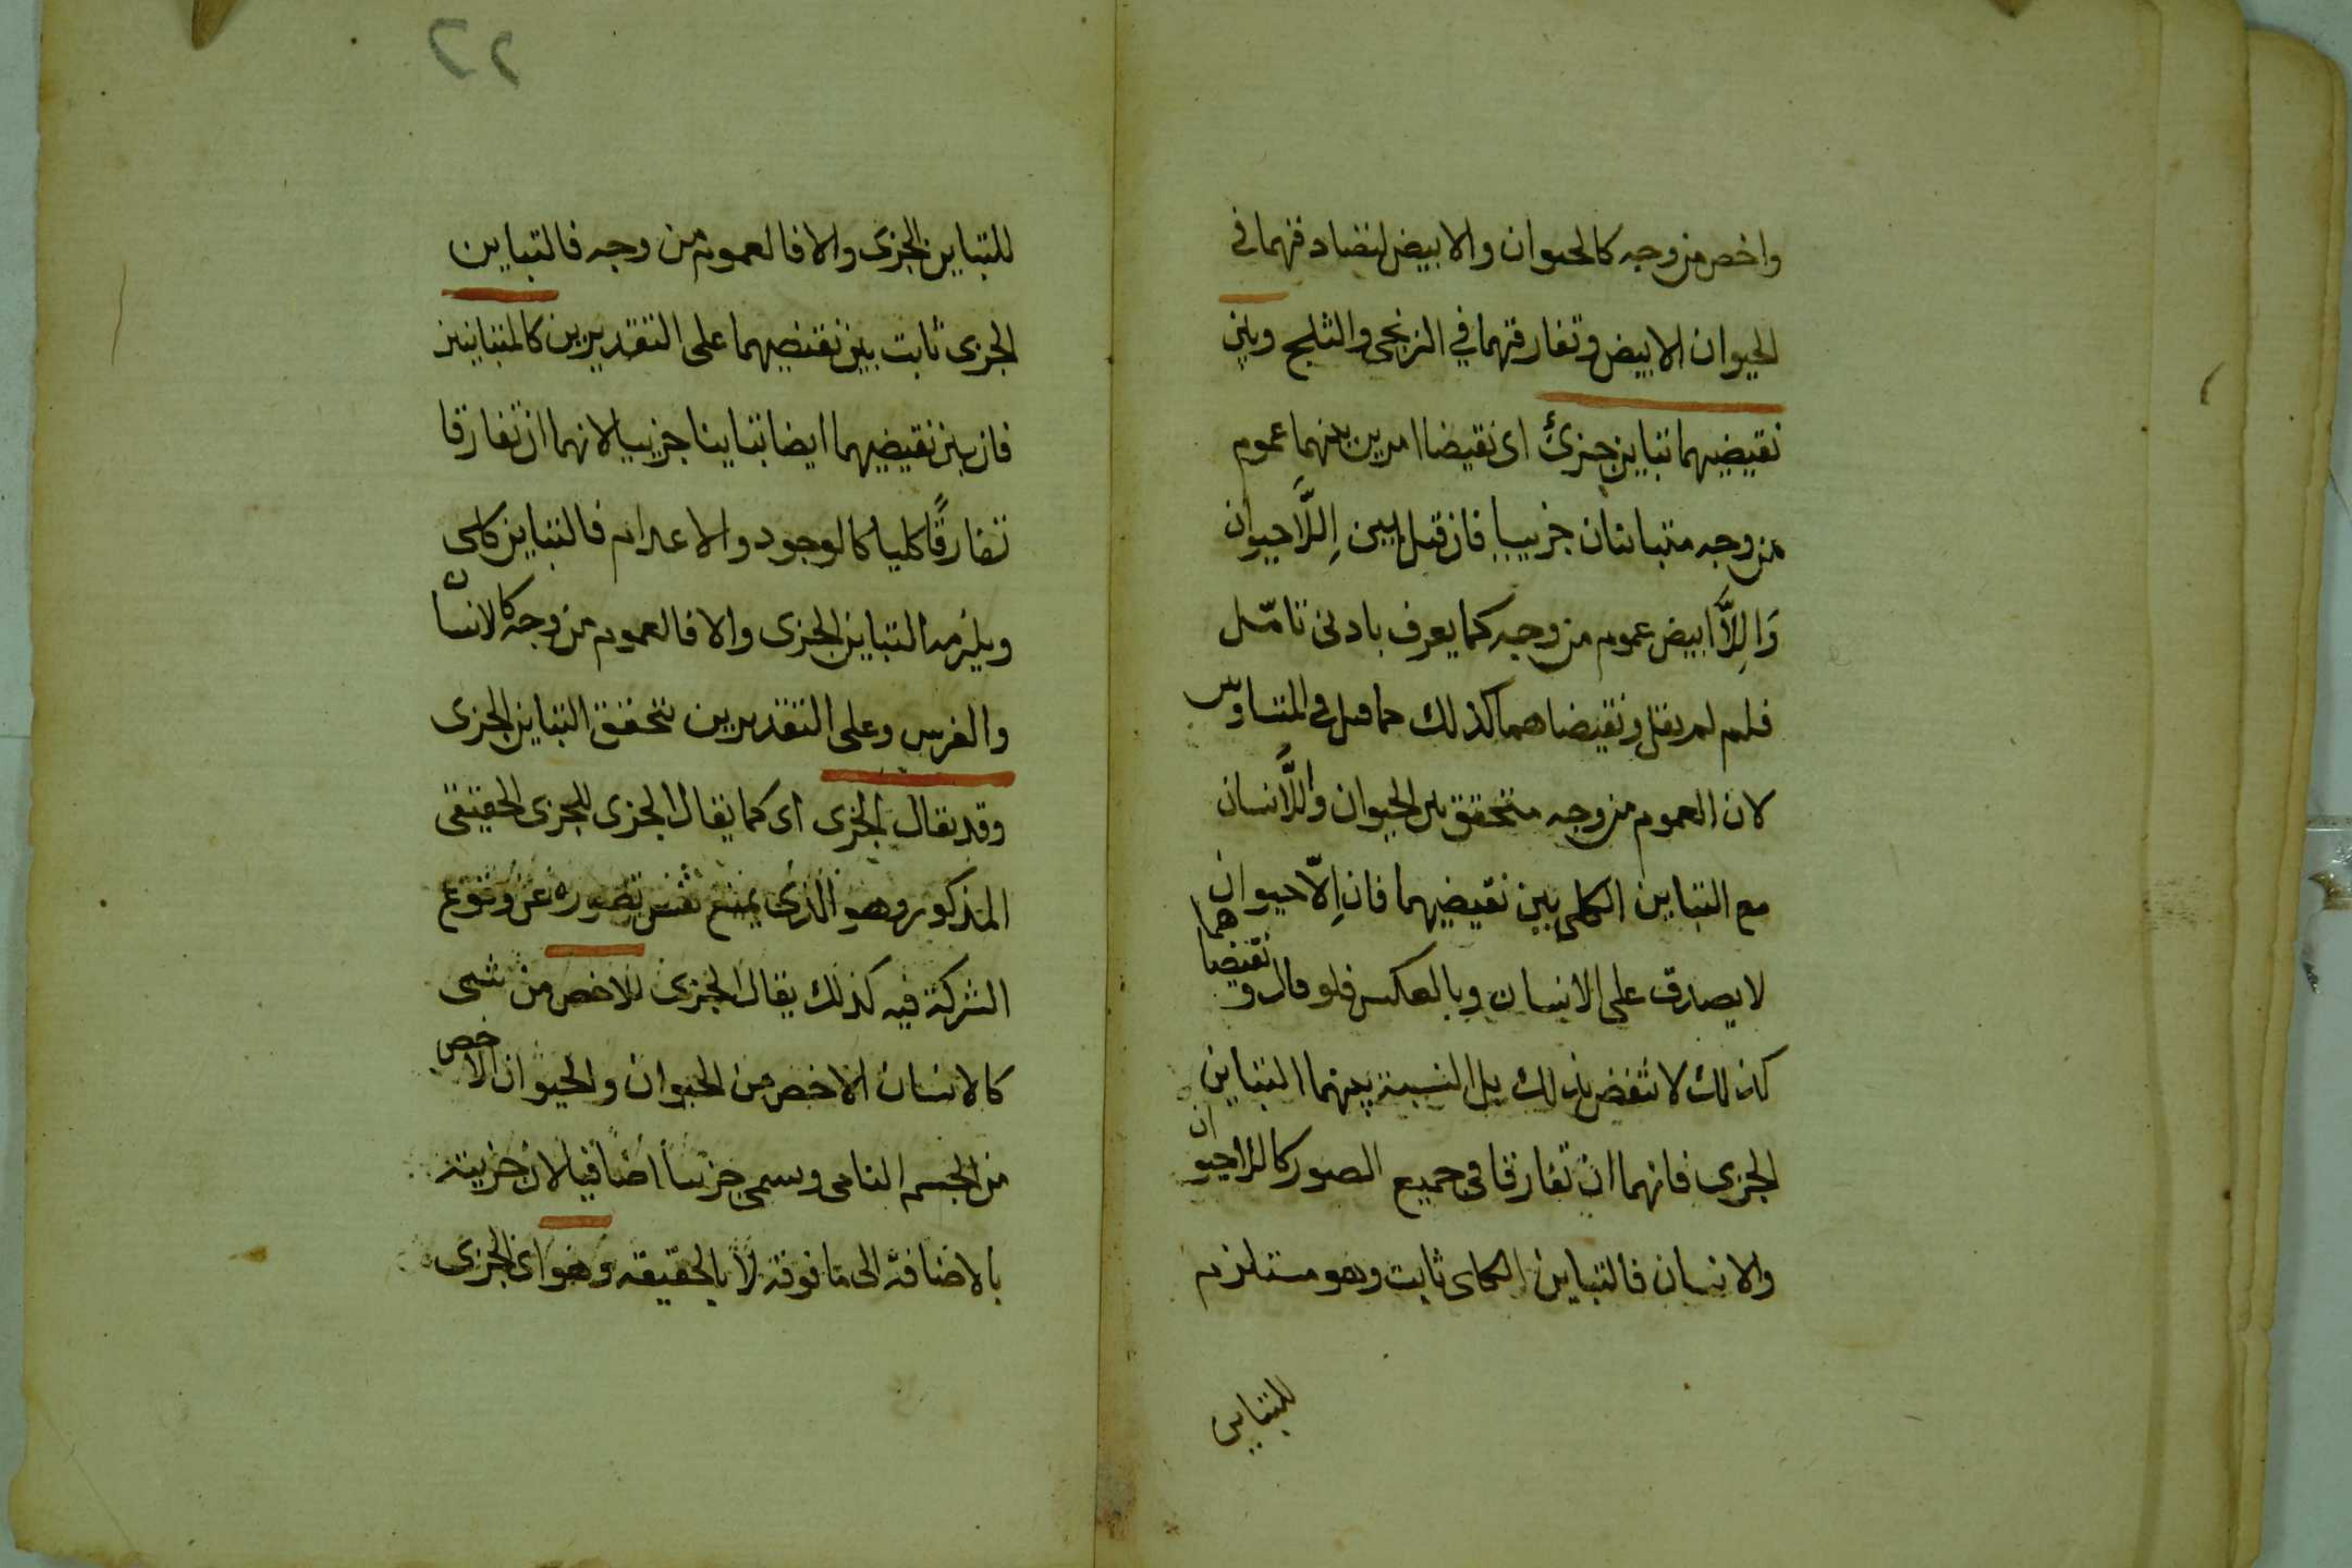 واخص من وجه كالحيوان والابيض لتصادقهما في
الحيوان الابيض وتفارقهما في الزنجي والثلج وبين
نقيضيهما تباين جزئ اى نقيضا امرين بينهما عموم
من وجه متباينان جزييا فان قيل بين اللَّاحيوان
وَاللَّاابيض عموم من وجه كما يعرف بادنى تامّل
فلم لم يقل ونقيضاهما كذلك كما قيل في المتساويين
لان العموم من وجه متحقق بين الحيوان واللَّاانسان
مع التباين الكلى بين نقيضيهما فان اللّاحيوان
لا يصدق على الانسان وبالعكس فلو قال ونقيضاهما
كذلك لانتقض بذلك بل النسبة بينهما التباين
الجزى فانهما ان تفارقا في جميع الصور كاللاحيوان
والانسان فالتباين الكلى ثابت وهو مستلزم
للتباين
٢٢
للتباين الجزى والا فالعموم من وجه فالتباين
الجزى ثابت بين نقيضيهما على التقديرين كالمتباينين
فان بين نقيضيهما ايضا تباينا جزييا لانهما ان تفارقا
تفارقًا كليا كالوجود والاعدام فالتباين كلى
ويلزمه التباين الجزى والا فالعموم من وجه كالانسان
والفرس وعلى التقديرين يتحقق التباين الجزى
وقد يقال الجزى اى كما يقال الجزى للجزى الحقيقى
المذكور وهو الذى يمنع نفس تصوره عن وقوع
الشركة فيه كذلك يقال الجزى للاخص من شى
كالانسان الاخص من الحيوان والحيوان الاخص
من الجسم النامى وسمى جزييا اضافيا لان جزييته
بالاضافة الى ما فوقه لا بالحقيقه وهو اى الجزى